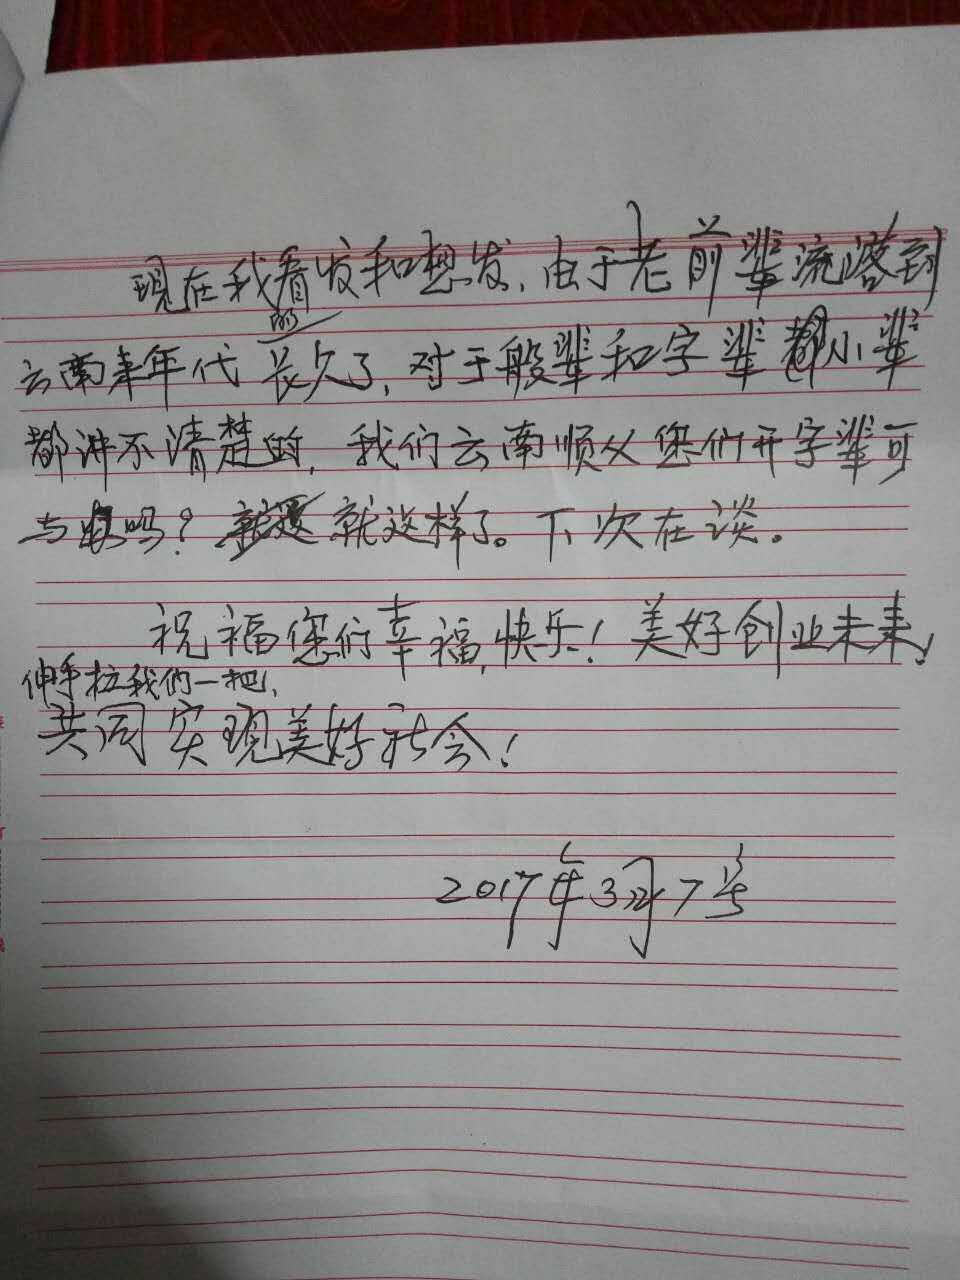 现在我看发和想发，由于老前辈流落到
的
云南来年代长久了，对于般辈和字辈 小辈
都讲不清楚的，我们云南顺从您们开字辈可
与 吗？就这样了。下次在谈。
祝福您们幸福，快乐！美好创业未来，
伸手拉我们一把，
共同实现美好社会！
2017年3月7号